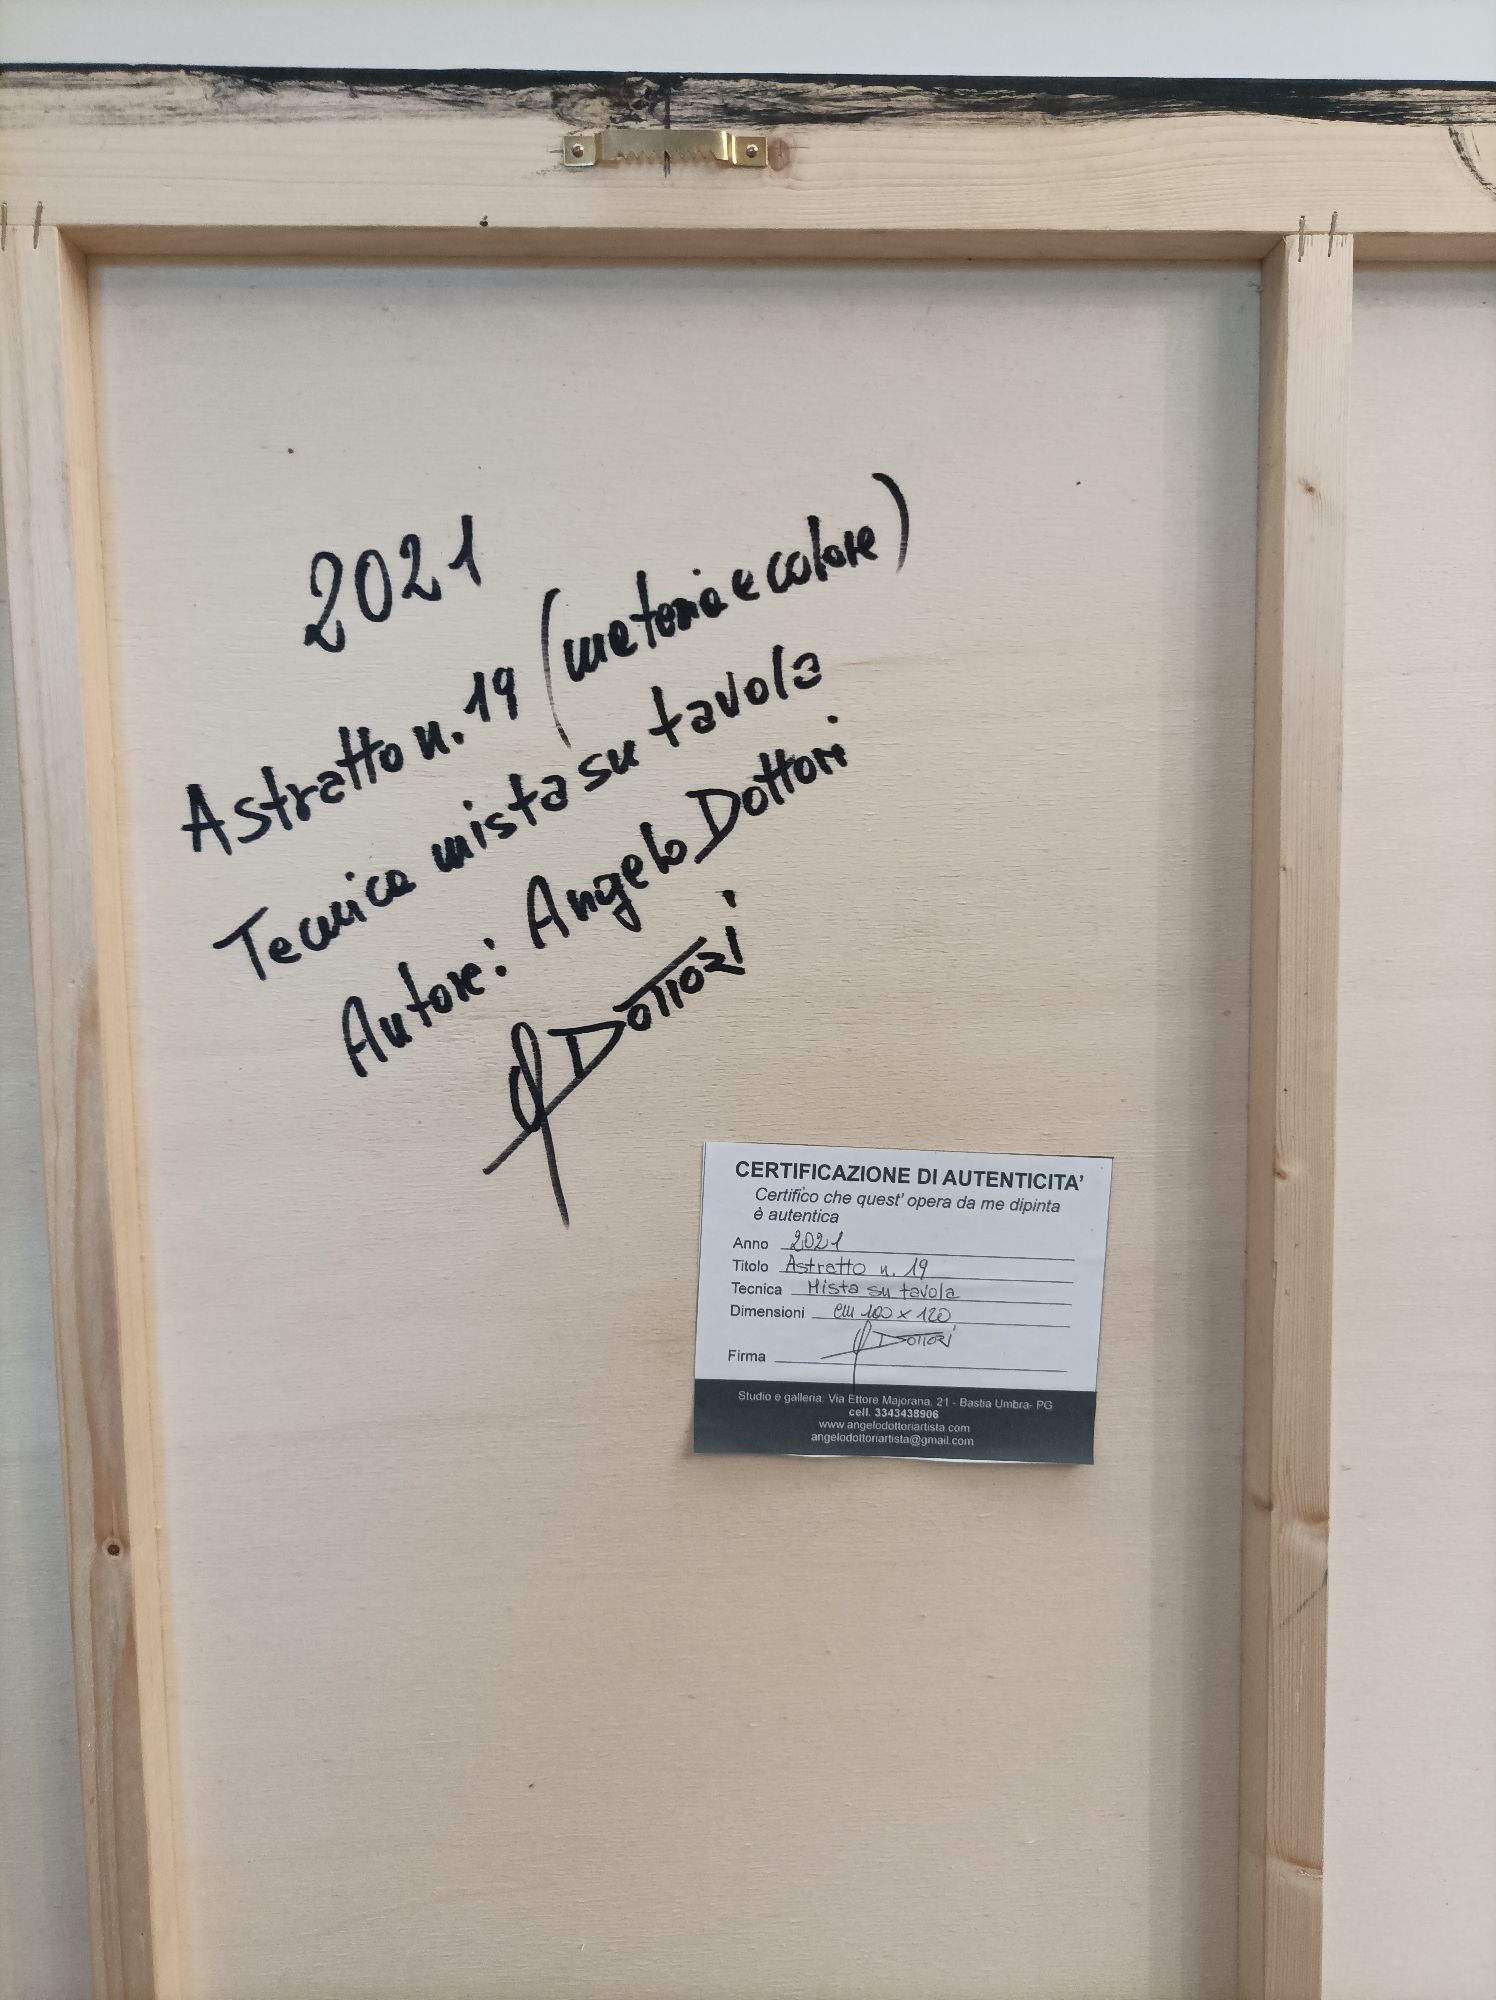 2021
Astratto n. 19 (materia e colore)
Tecnica mista su tavola
Autore: Angelo Dottori
Dottori
CERTIFICAZIONE DI AUTENTICITA'
Certifico che quest' opera da me dipinta
è autentica
Anno 2021
Titolo Astratto n. 19
Tecnica Mista su tavola
Dimensioni cm 100 x 120
Dottori
Firma
Studio e galleria: Via Ettore Majorana, 21 - Bastia Umbra- PG
cell. 3343438906
www.angelodottoriartista.com
angelodottoriartista@gmail.com